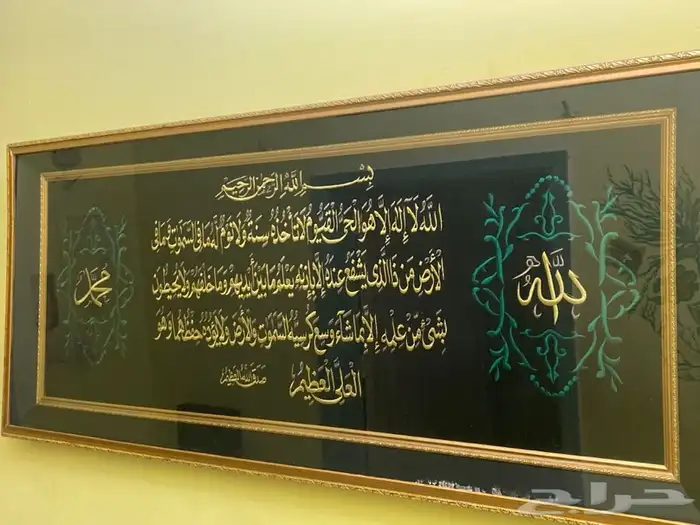 بسم الله الرحمن الرحيم
الله لا إله إلا هو الحي القيوم لا تأخذه سنة ولا نوم له ما في السموت وما في
الأرض من ذا الذي يشفع عنده إلا بإذنه يعلم ما بين أيديهم وما خلفهم ولا يحيطون
بشئ من علمه إلا بما شاء وسع كرسيه السموت والأرض ولا يؤده حفظهما وهو
العلي العظيم
صدق الله العظيم
الله
محمد
حراج